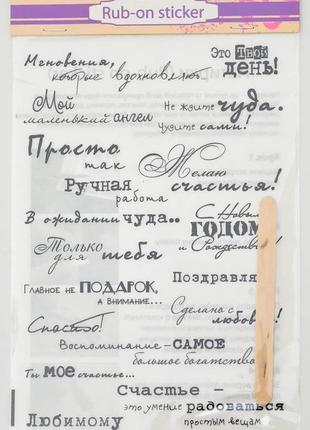 Rub-on sticker
Это Твой
день!
Мгновения,
которые вдохновляют
Мой
маленький ангел
Не ждите чуда.
Чудите сами!
Просто
так
Желаю
счастья!
Ручная
работа
В ожидании чуда..
С Новым
ГОДОМ
и Рождеством
Только
для тебя
Поздравля
Главное не ПОДАРОК,
а внимание...
Сделано с
любовь
Спасибо!
Воспоминание - САМОЕ
большое богатство
Ты мое счастье...
Счастье -
это умение радоваться
простым вещам
Любимому